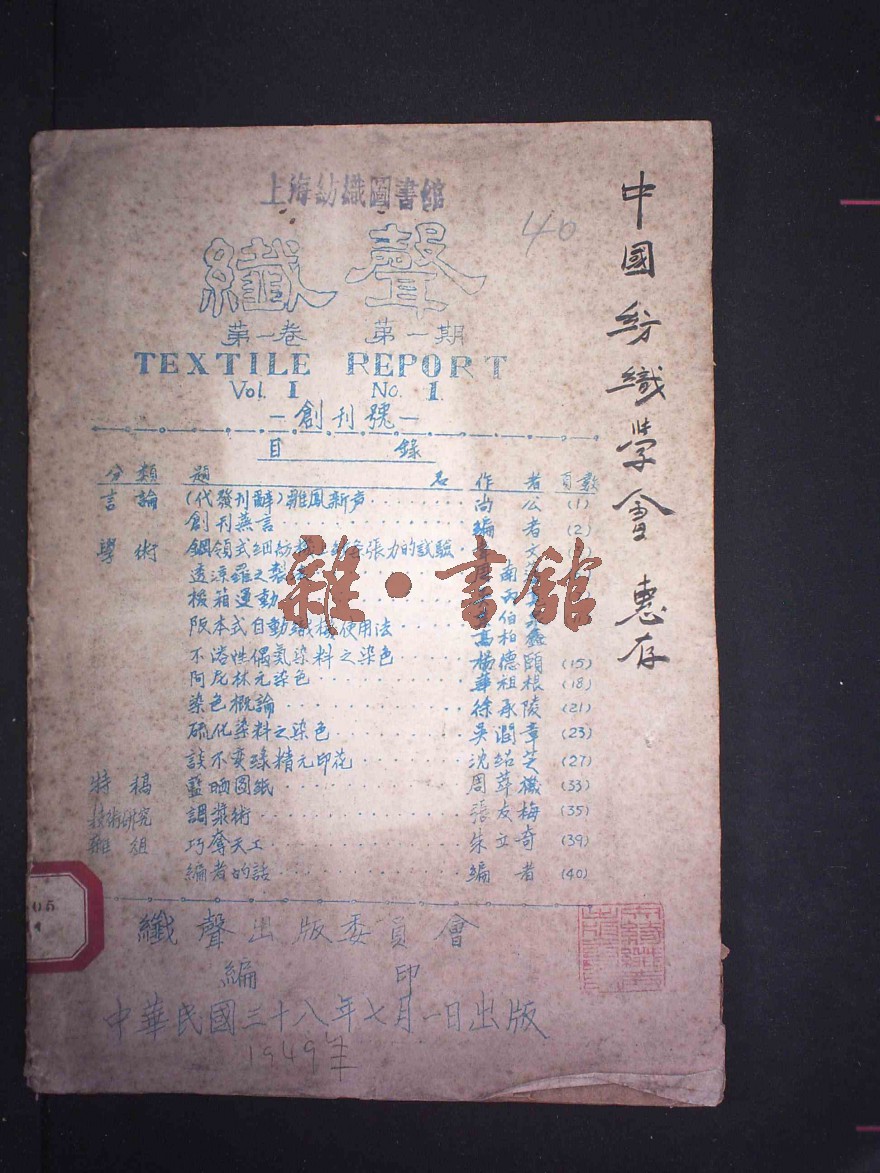 上海紡織圖書館
40
纖聲
第一卷 第一期
TEXTILE REPORT
Vol. I No. 1
—創刊號—
目錄
分類 題名 作者 頁數
言論 (代發刊辭)雛鳳新声 尚公 (1)
創刊蕪言 編者 (2)
學術 鋼領式細紡機上紗条張力的試驗 文
透涼羅之製 南
梭箱運動
阪本式自動織機使用法 高柏鑫
不溶性偶氮染料之染色 楊德頤 (15)
阿尼林元染色 華祖根 (18)
染色概論 徐承陵 (21)
硫化染料之染色 吳潤章 (23)
談不変綠精元印花 沈紹芝 (27)
特稿 藍晒圖紙 周萃禨 (33)
技術研究 調漿術 張友梅 (35)
雜俎 巧奪天工 朱立奇 (39)
編者的話 編者 (40)
纖聲出版委員會
編印
中華民國三十八年七月一日出版
1949年
中國紡織學會 惠存
雜·書館
05